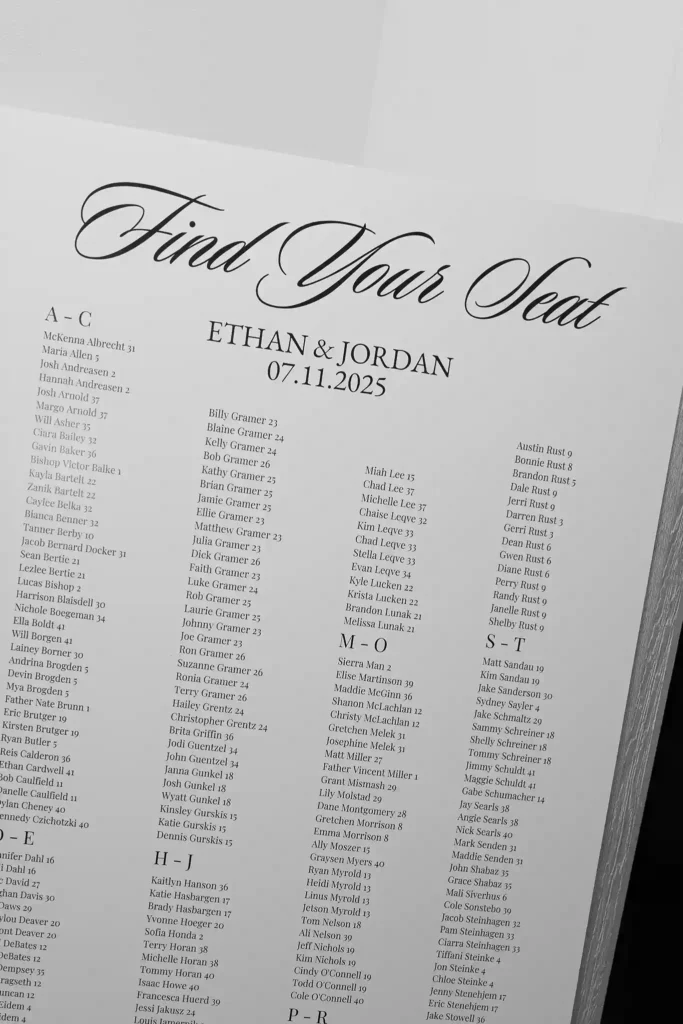 Find Your Seat
ETHAN & JORDAN
07.11.2025
A - C
McKenna Albrecht 31
Maria Allen 5
Josh Andreasen 2
Hannah Andreasen 2
Josh Arnold 37
Margo Arnold 37
Will Asher 35
Ciara Bailey 32
Gavin Baker 36
Bishop Victor Balke 1
Kayla Bartelt 22
Zanik Bartelt 22
Caylee Belka 32
Bianca Benner 32
Tanner Berby 10
Jacob Bernard Docker 31
Sean Bertie 21
Lezlee Bertie 21
Lucas Bishop 2
Harrison Blaisdell 30
Nichole Boegeman 34
Ella Boldt 41
Will Borgen 41
Lainey Borner 30
Andrina Brogden 5
Devin Brogden 5
Mya Brogden 5
Father Nate Brunn 1
Eric Brutger 19
Kirsten Brutger 19
Ryan Butler 5
Reis Calderon 36
Ethan Cardwell 41
Bob Caulfield 11
Danelle Caulfield 11
Dylan Cheney 40
Kennedy Czichotzki 40
D - E
Dahl 16
Dahl 16
David 27
Davis 30
Daws 29
Deaver 20
Deaver 20
DeBates 12
DeBates 12
Dempsey 35
Eidem 4
Billy Gramer 23
Blaine Gramer 24
Kelly Gramer 24
Bob Gramer 26
Kathy Gramer 25
Brian Gramer 25
Jamie Gramer 25
Ellie Gramer 23
Matthew Gramer 23
Julia Gramer 23
Dick Gramer 26
Faith Gramer 23
Luke Gramer 24
Rob Gramer 25
Laurie Gramer 25
Johnny Gramer 23
Joe Gramer 23
Ron Gramer 26
Suzanne Gramer 26
Ronia Gramer 24
Terry Gramer 26
Hailey Grentz 24
Christopher Grentz 24
Brita Griffin 36
Jodi Guentzel 34
John Guentzel 34
Janna Gunkel 18
Josh Gunkel 18
Wyatt Gunkel 18
Kinsley Gurskis 15
Katie Gurskis 15
Dennis Gurskis 15
H - J
Kaitlyn Hanson 36
Katie Hasbargen 17
Brady Hasbargen 17
Yvonne Hoeger 20
Sofia Honda 2
Terry Horan 38
Michelle Horan 38
Tommy Horan 40
Isaac Howe 40
Francesca Huerd 39
Jessi Jakusz 24
Louis
Miah Lee 15
Chad Lee 37
Michelle Lee 37
Chaise Leqve 32
Kim Leqve 33
Chad Leqve 33
Stella Leqve 33
Evan Leqve 34
Kyle Lucken 22
Krista Lucken 22
Brandon Lunak 21
Melissa Lunak 21
M - O
Sierra Man 2
Elise Martinson 39
Maddie McGinn 36
Shanon McLachlan 12
Christy McLachlan 12
Gretchen Melek 31
Josephine Melek 31
Matt Miller 27
Father Vincent Miller 1
Grant Mismash 29
Lily Molstad 29
Dane Montgomery 28
Gretchen Morrison 8
Emma Morrison 8
Ally Moszer 15
Graysen Myers 40
Ryan Myrold 13
Heidi Myrold 13
Linus Myrold 13
Jetson Myrold 13
Tom Nelson 18
Ali Nelson 39
Jeff Nichols 19
Kim Nichols 19
Cindy O'Connell 19
Todd O'Connell 19
Cole O'Connell 40
P - R
Austin Rust 9
Bonnie Rust 8
Brandon Rust 5
Dale Rust 9
Jerri Rust 9
Darren Rust 3
Gerri Rust 3
Dean Rust 6
Gwen Rust 6
Diane Rust 6
Perry Rust 9
Randy Rust 9
Janelle Rust 9
Shelby Rust 9
S - T
Matt Sandau 19
Kim Sandau 19
Jake Sanderson 30
Sydney Sayler 4
Jake Schmaltz 29
Sammy Schreiner 18
Shelly Schreiner 18
Tommy Schreiner 18
Jimmy Schuldt 41
Maggie Schuldt 41
Gabe Schumacher 14
Jay Searls 38
Angie Searls 38
Nick Searls 40
Mark Senden 31
Maddie Senden 31
John Shabaz 35
Grace Shabaz 35
Mali Siverhus 6
Cole Sonstebo 39
Jacob Steinhagen 32
Pam Steinhagen 33
Ciarra Steinhagen 33
Tiffani Steinke 4
Jon Steinke 4
Chloe Steinke 4
Jenny Stenehjem 17
Eric Stenehjem 17
Jake Stowell 36